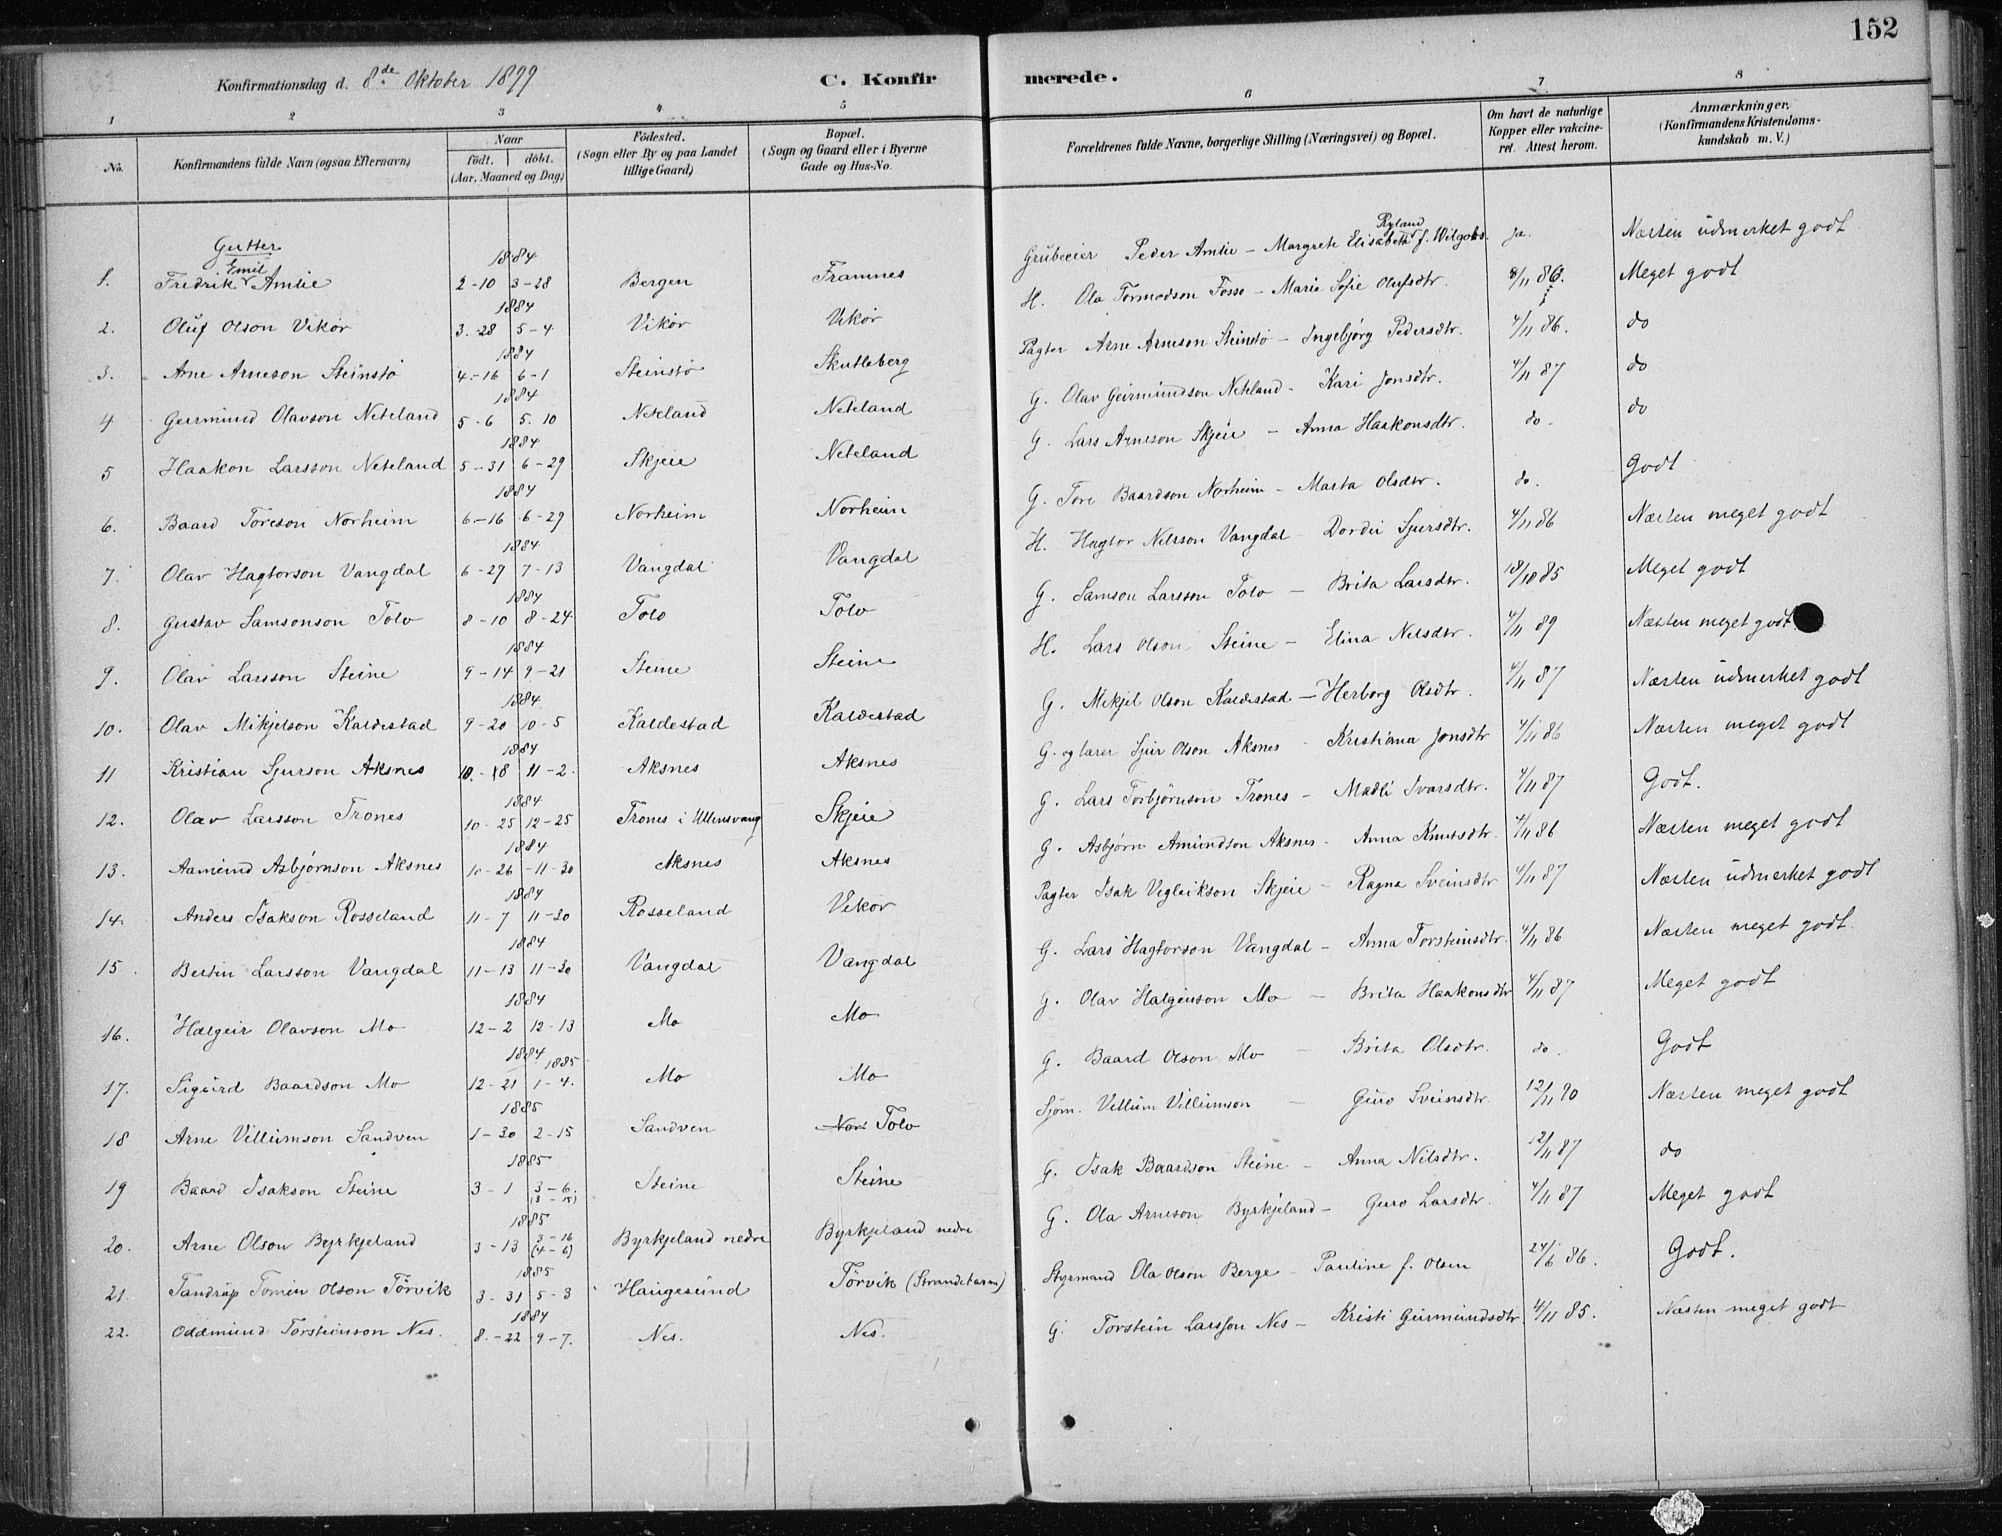 152
Konfirmationsdag d. 8de Oktober 1899 C. Konfirmerede.
1 2 3 4 5 6 7 8
No. Konfirmandens fulde Navn (ogsaa Efternavn) Naar født. døbt. (Aar, Maaned og Dag) Fødested. (Sogn eller By og paa Landet tillige Gaard) Bopæl. (Sogn og Gaard eller i Byerne Gade og Hus-No. Forældrenes fulde Navne, borgerlige Stilling (Næringsvei) og Bopæl. Om havt de naturlige Kopper eller vakcineret. Attest herom. Anmærkninger. (Konfirmandens Kristendomskundskab m. V.)
Gutter
1. Fredrik Emil Amlie 1884 2-10 3-28 Bergen Framnes Grubeeier Peder Amlie - Margrete Elisabeth Ryland f. ja. Næsten udmerket godt
2. Oluf Olson Vikør 1884 3-28 5-4 Vikør Vikør H. Ola Tormodson Fosse - Marie Sofie Olufsdtr. 4/11 86. Meget godt
3. Arne Arneson Steinstø 1884 4-16 6-1 Steinstø Skutleberg Pagter Arne Arneson Steinstø - Ingebjørg Pedersdtr. 4/11 86. do
4 Geirmund Olavson Neteland 1884 5-6 5-10 Neteland Neteland G. Olav Geirmundson Neteland - Kari Jonsdtr. 4/11 87 do
5 Haakon Larsson Neteland 1884 5-31 6-29 Skjeie Neteland G. Lars Arneson Skjeie - Anna Haakonsdtr. do. do
6. Baard Toreson Norheim 1884 6-16 6-29 Norheim Norheim G. Tore Baardson Norheim - Marta Olsdtr. do. Godt
7. Olav Hagtorson Vangdal 1884 6-29 7-13 Vangdal Vangdal H. Hagtor Nilsson Vangdal - Dordei Sjursdtr. 4/11 86 Næsten meget godt
8. Gustav Samsonson Tolo 1884 8-10 8-24 Tolo Tolo G. Samson Larsson Tolo - Brita Larsdtr. 18/10 85 Meget godt
9. Olav Larsson Steine 1884 9-14 9-21 Steine Steine H. Lars Olson Steine - Elina Nilsdtr. 4/11 89 Næsten meget godt
10. Olav Mikjelson Kaldestad 1884 9-20 10-5 Kaldestad Kaldestad G. Mikjel Olson Kaldestad - Herborg Olsdtr. 4/11 87 Næsten udmerket godt
11 Kristian Sjurson Aksnes 1884 10-18 11-2. Aksnes Aksnes G. og lærer Sjur Olson Aksnes - Kristiana Jonsdtr 4/11 86 Næsten meget godt
12. Olav Larsson Trones 1884 10-25 12-25 Trones i Ullensvang Skjeie G. Lars Torbjørnson Trones - Madli Ivarsdtr. 4/11 87 Godt.
13. Aamund Asbjørnson Aksnes 1884 10-26 11-30 Aksnes Aksnes G. Asbjørn Amundson Aksnes - Anna Knutsdtr. 4/11 86 Næsten meget godt
14. Anders Isakson Rosseland 1884 11-7 11-30 Rosseland Vikør Pagter Isak Vegleikson Skjeie - Ragna Sveinsdtr 4/11 87 Næsten udmerket godt
15. Bertin Larsson Vangdal 1884 11-13 11-30 Vangdal Vangdal G. Lars Hagtorson Vangdal - Anna Torsteinsdtr. 4/11 86 Næsten meget godt.
16. Halgeir Olavson Mo 1884 12-2 12-13 Mo Mo G. Olav Halgeirson Mo - Brita Haakonsdtr 4/11 87 Meget godt
17. Sigurd Baardson Mo 1884 12-21 1885 1-4. Mo Mo G. Baard Olson Mo - Brita Olsdtr. do. Godt
18 Arne Villumson Sandven 1885 1-30 2-15 Sandven Nor Tolo Sjøm. Villum Villumson - Guro Sveinsdtr. 12/11 90 Næsten meget godt
19 Baard Isakson Steine 1885 3-1 3-6. (3-15) Steine Steine G. Isak Baardson Steine - Anna Nilsdtr. 12/11 87 do
20. Arne Olson Byrkjeland 1885 3-13 3-16 (4-6) Byrkjeland nedre Byrkjeland nedre G. Ola Arneson Byrkjeland - Guro Larsdtr. 4/11 87 Meget godt
21. Tandrup Tomin Olson Tørvik 1885 3-31 5-3 Haugesund Tørvik (Strandebarm) Styrmand Ola Olson Berge - Pauline f. Olsen 24/6 86. Godt.
22. Oddmund Torsteinson Nes. 1884 8-22 9-7. Nes. Nes. G. Torstein Larsson Nes - Kristi Geirmundsdtr. 4/11 85. Næsten meget godt